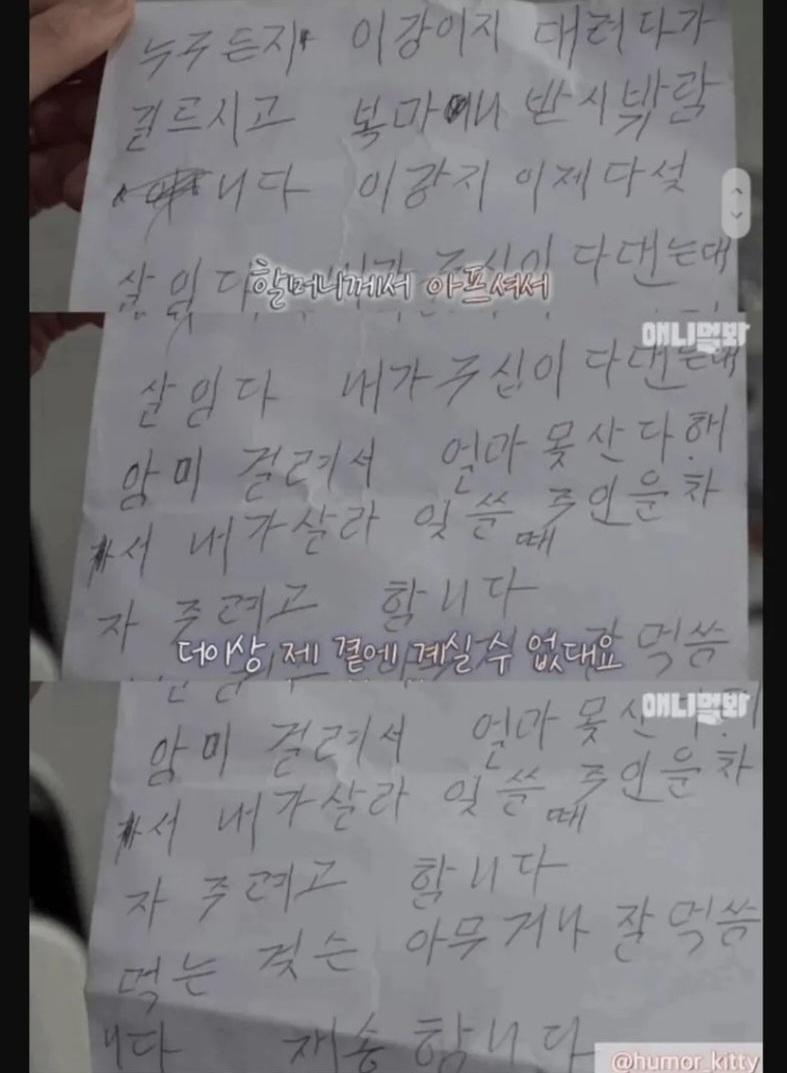 누구든지 이강이지 대려다가
길르시고 복마니 받시밖랍
니다 이강지 이제다섯
살임다 내가 주신이 다댄는대
할머니께서 아프셔서
애니멀봐
살임다 내가 주신이 다댄는대
암미 걸려서 얼마 못산다해
서 내가살라 잇쓸때 주인을차
자 주려고 함니다
더이상 제 곁엔 계실 수 없대요
잘먹씀
애니멀봐
암미 걸려서 얼마 못산
서 내가살라 잇쓸때 주인을차
자 주려고 함니다
먹는 것슨 아무거나 잘먹씀
니다 재송함니다
@humor_kitty